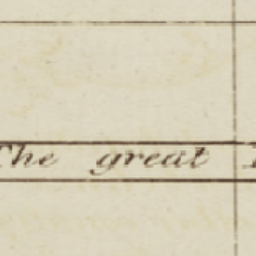 The great